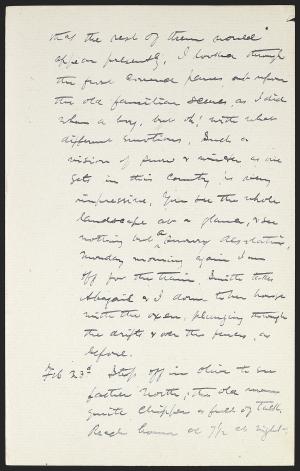 that the rest of them would
appear presently, I looked through
the first covered panes, out upon
the old familiar scenes, as I did
when a boy, but oh! with what
different emotions. Such a
vision of snow & winter as one
gets in this country is very
impressive. You see the whole
landscape at a glance, & see
nothing but a snowy desolation.
Monday morning again I am
off for the train. Smith takes
Abigail & I down to her house
with the oxen, plunging through
the drifts, & over the fences, as
before.
Feb 23d. Stop off in Olive to see
father North; the old man
quite chipper & full of talk.
Reach home at 7½ at night.